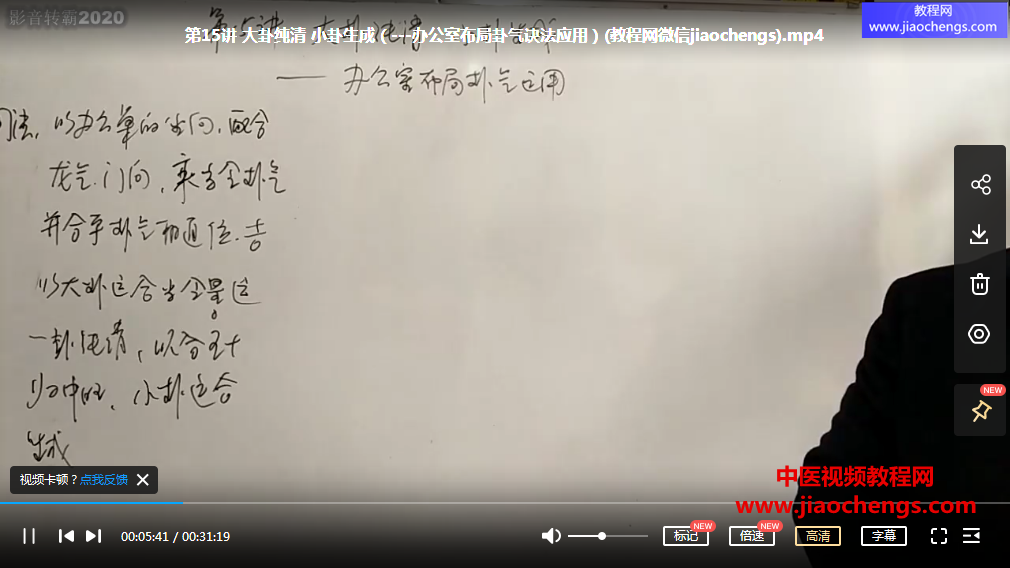 影音转霸2020
教程网
www.jiaochengs.com
第15讲 大卦纯清 小卦生成（---办公室布局卦气诀法应用）(教程网微信jiaochengs).mp4
—— 办公室布局卦气运用
法，以办公桌的坐向，配合
龙气、门向，乘当全卦气
并合乎卦气相通位、吉
以大卦运合当全星运
一卦纯清，以合五十
归中旺，小卦运合
生成
NEW
视频卡顿？点我反馈
中医视频教程网
www.jiaochengs.com
00:05:41 / 00:31:19
标记 NEW
倍速 NEW
高清
字幕